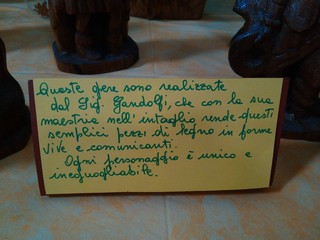 Queste opere sono realizzate
dal Sig. Gandolfi, che con la sua
maestria nell'intaglio rende questi
semplici pezzi di legno in forme
vive e comunicanti.
Ogni personaggio è unico e
ineguagliabile.